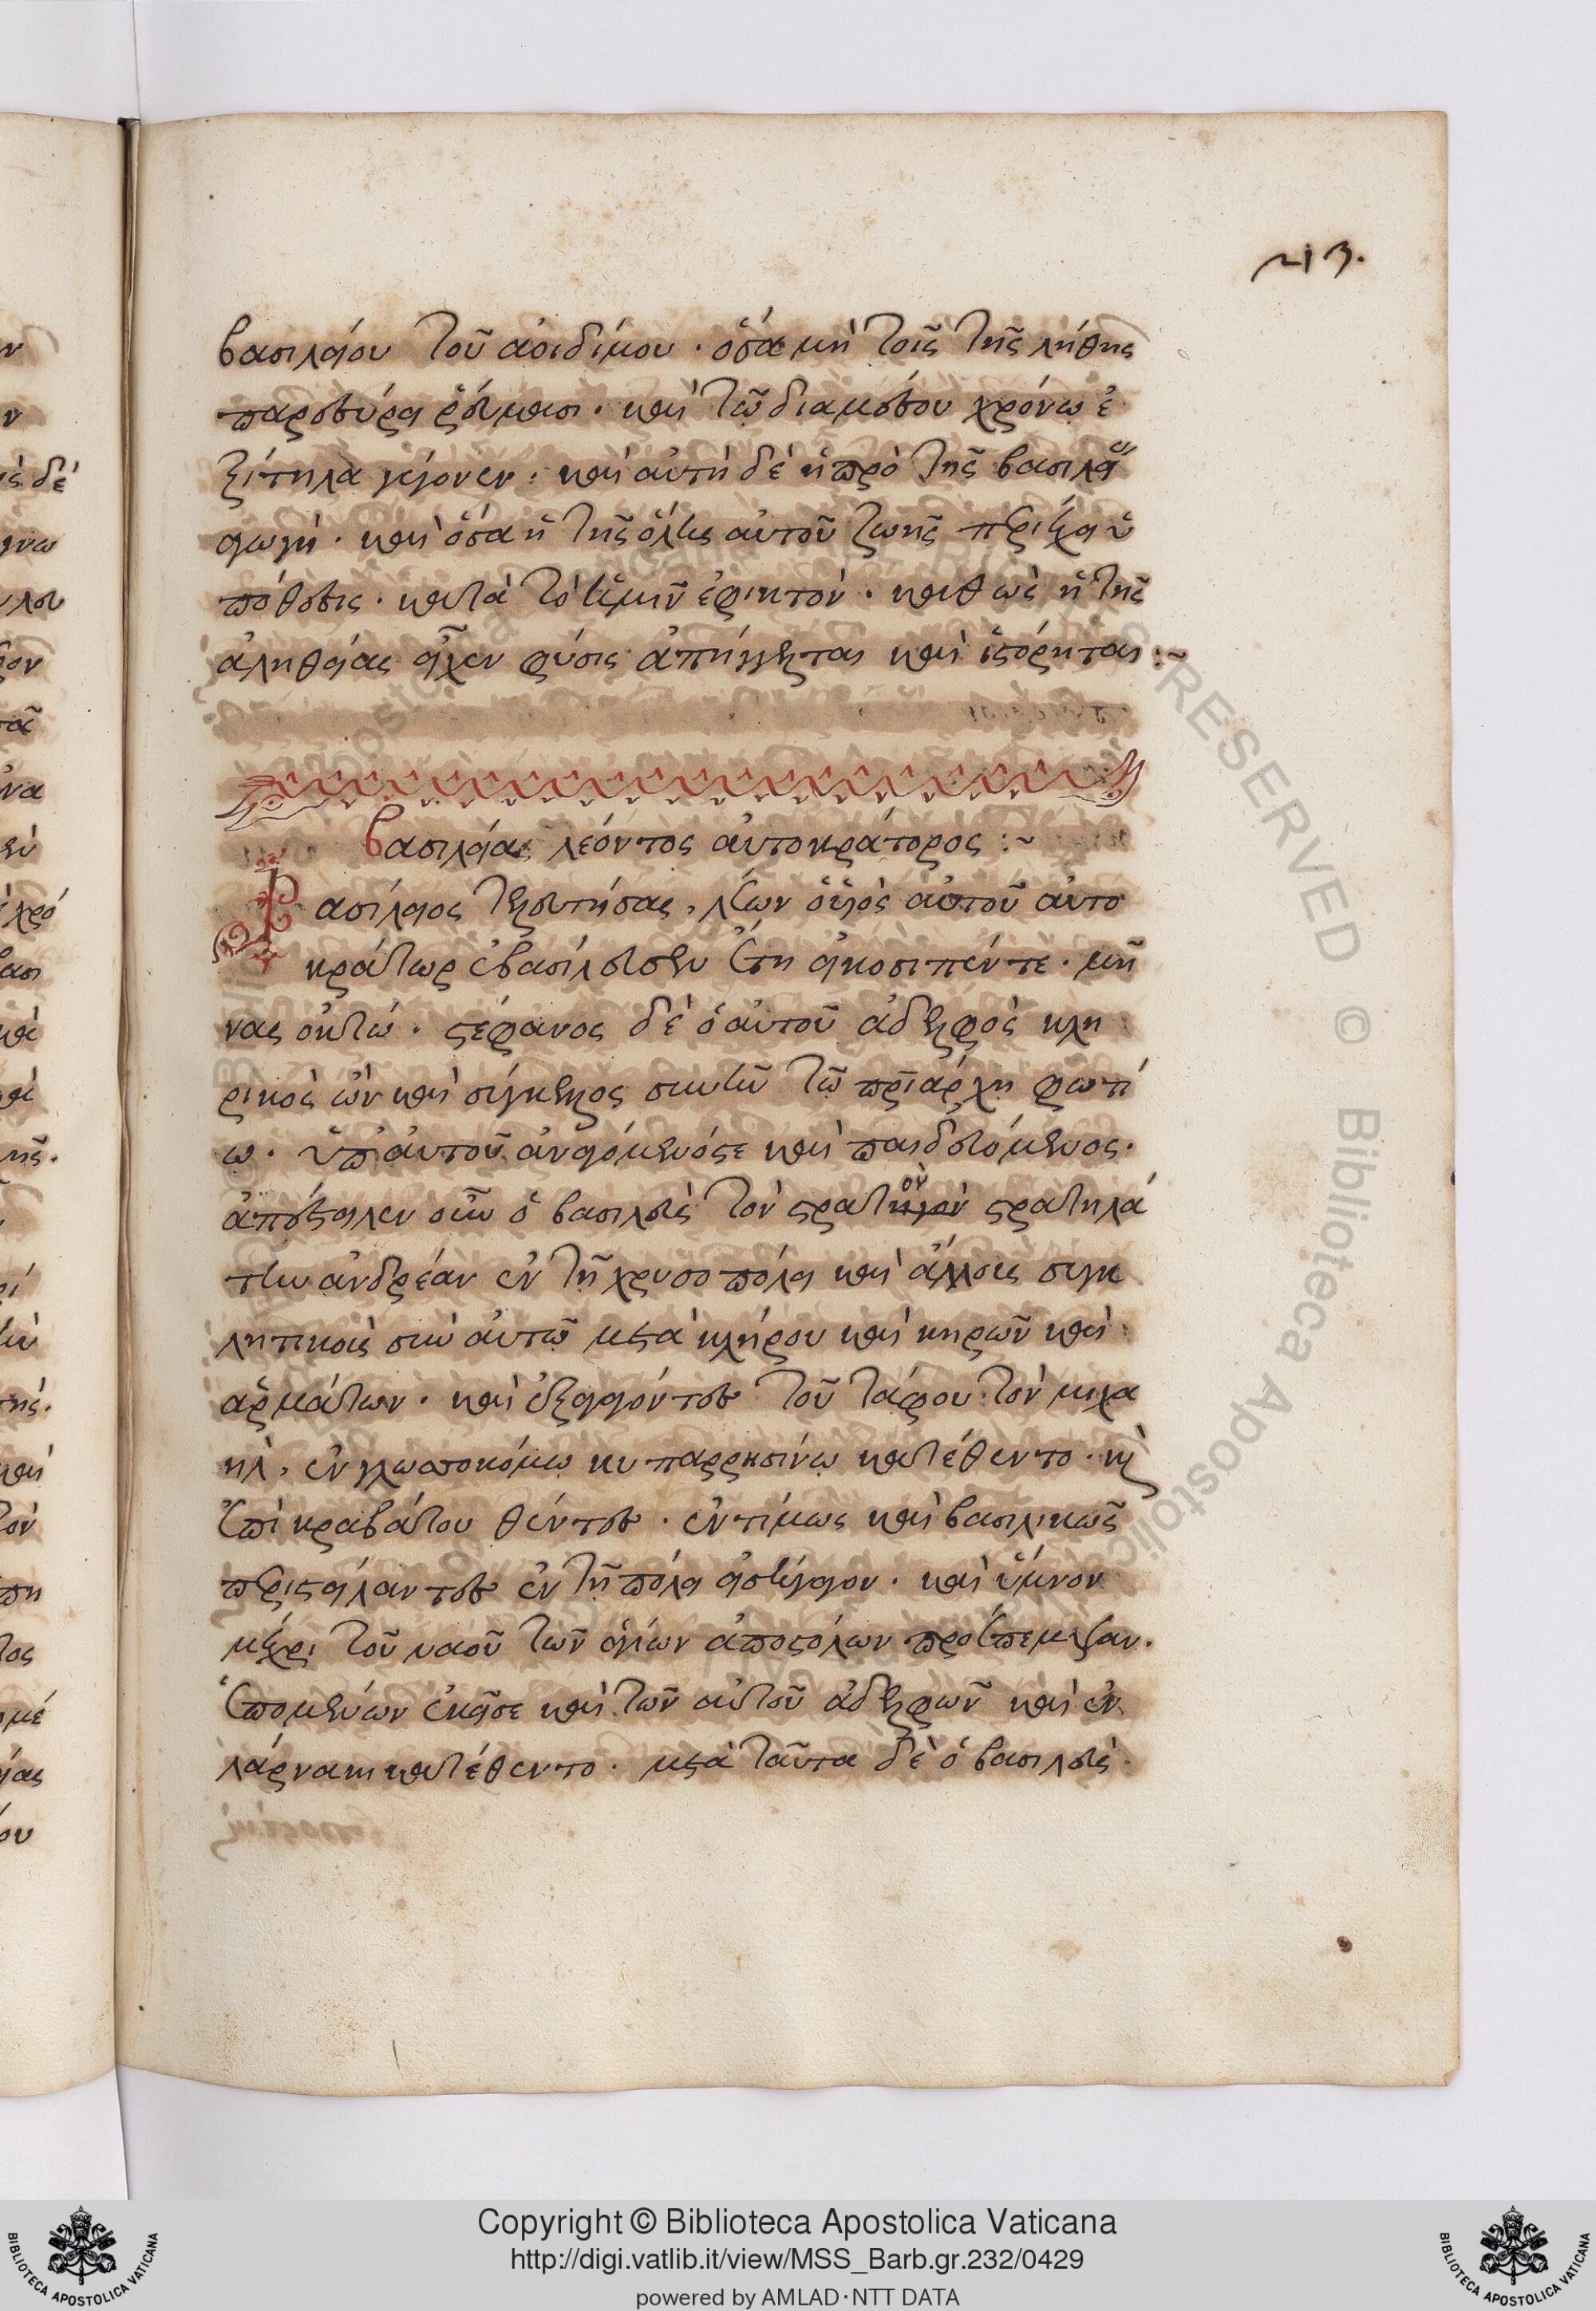 213.
βασιλείου τοῦ ἀοιδίμου · ὅσα μὴ τοῖς τῆς λήθης
παρεσύρη ῥεύμασι · καὶ τῶ διαμέσου χρόνω ἐ
ξίτηλα γέγονεν · καὶ αὐτὴ δὲ ἡ πρὸ τῆς βασιλεί
ἀγωγή · καὶ ὅσα ἡ τῆς ὅλης αὐτοῦ ζωῆς περιέχει ὑ
πόθεσις · κατὰ τὸ ἡμῖν ἐφικτὸν · καθὼς ἡ τῆς
ἀληθείας εἶχεν φύσις ἀπήγγελται καὶ ἱστόρηται :~
βασιλείας λεόντος αὐτοκράτορος :~
ασίλειος τελευτήσας, λέων ὁ υἱὸς αὐτοῦ αὐτο
κράτωρ ἐβασίλευσεν ἔτη εἰκοσιπέντε · μῆ
νας ὀκτώ · στέφανος δὲ ὁ αὐτοῦ ἀδελφὸς κλη
ρικὸς ὢν καὶ σύγκελλος συνῆν τῶ πριάρχη φωτί
ω · ὑπ αὐτοῦ ἀναγόμενός τε καὶ παιδευόμενος ·
ἀπέστειλεν οὖν ὁ βασιλεὺς τὸν στρατηγὸν στρατηλά
την ἀνδρέαν ἐν τῆ χρυσοπόλει καὶ ἄλλοις συγκ
λητικοῖς σὺν αὐτῶ μετὰ κλήρου καὶ κηρῶν καὶ
ἀρμάτων · καὶ ἐξαγαγόντες τοῦ τάφου τὸν μιχα
ὴλ, ἐν γλωσσοκόμω κυπαρρισίνω κατέθεντο · κ
ἐπὶ κραβάτου θέντες · ἐντίμως καὶ βασιλικῶς
περιστείλαντες ἐν τῆ πόλει εἰσήγαγον · καὶ ὕμνον
μέχρι τοῦ ναοῦ τῶν ἁγίων ἀποστόλων προέπεμψαν ·
ἑπομένων ἐκεῖσε καὶ τῶν αὐτοῦ ἀδελφῶν καὶ ἐν
λάρνακι κατέθεντο · μετὰ ταῦτα δὲ ὁ βασιλεὺς
Copyright © Biblioteca Apostolica Vaticana
http://digi.vatlib.it/view/MSS_Barb.gr.232/0429
powered by AMLAD·NTT DATA
BIBLIOTECA APOSTOLICA VATICANA
BIBLIOTECA APOSTOLICA VATICANA